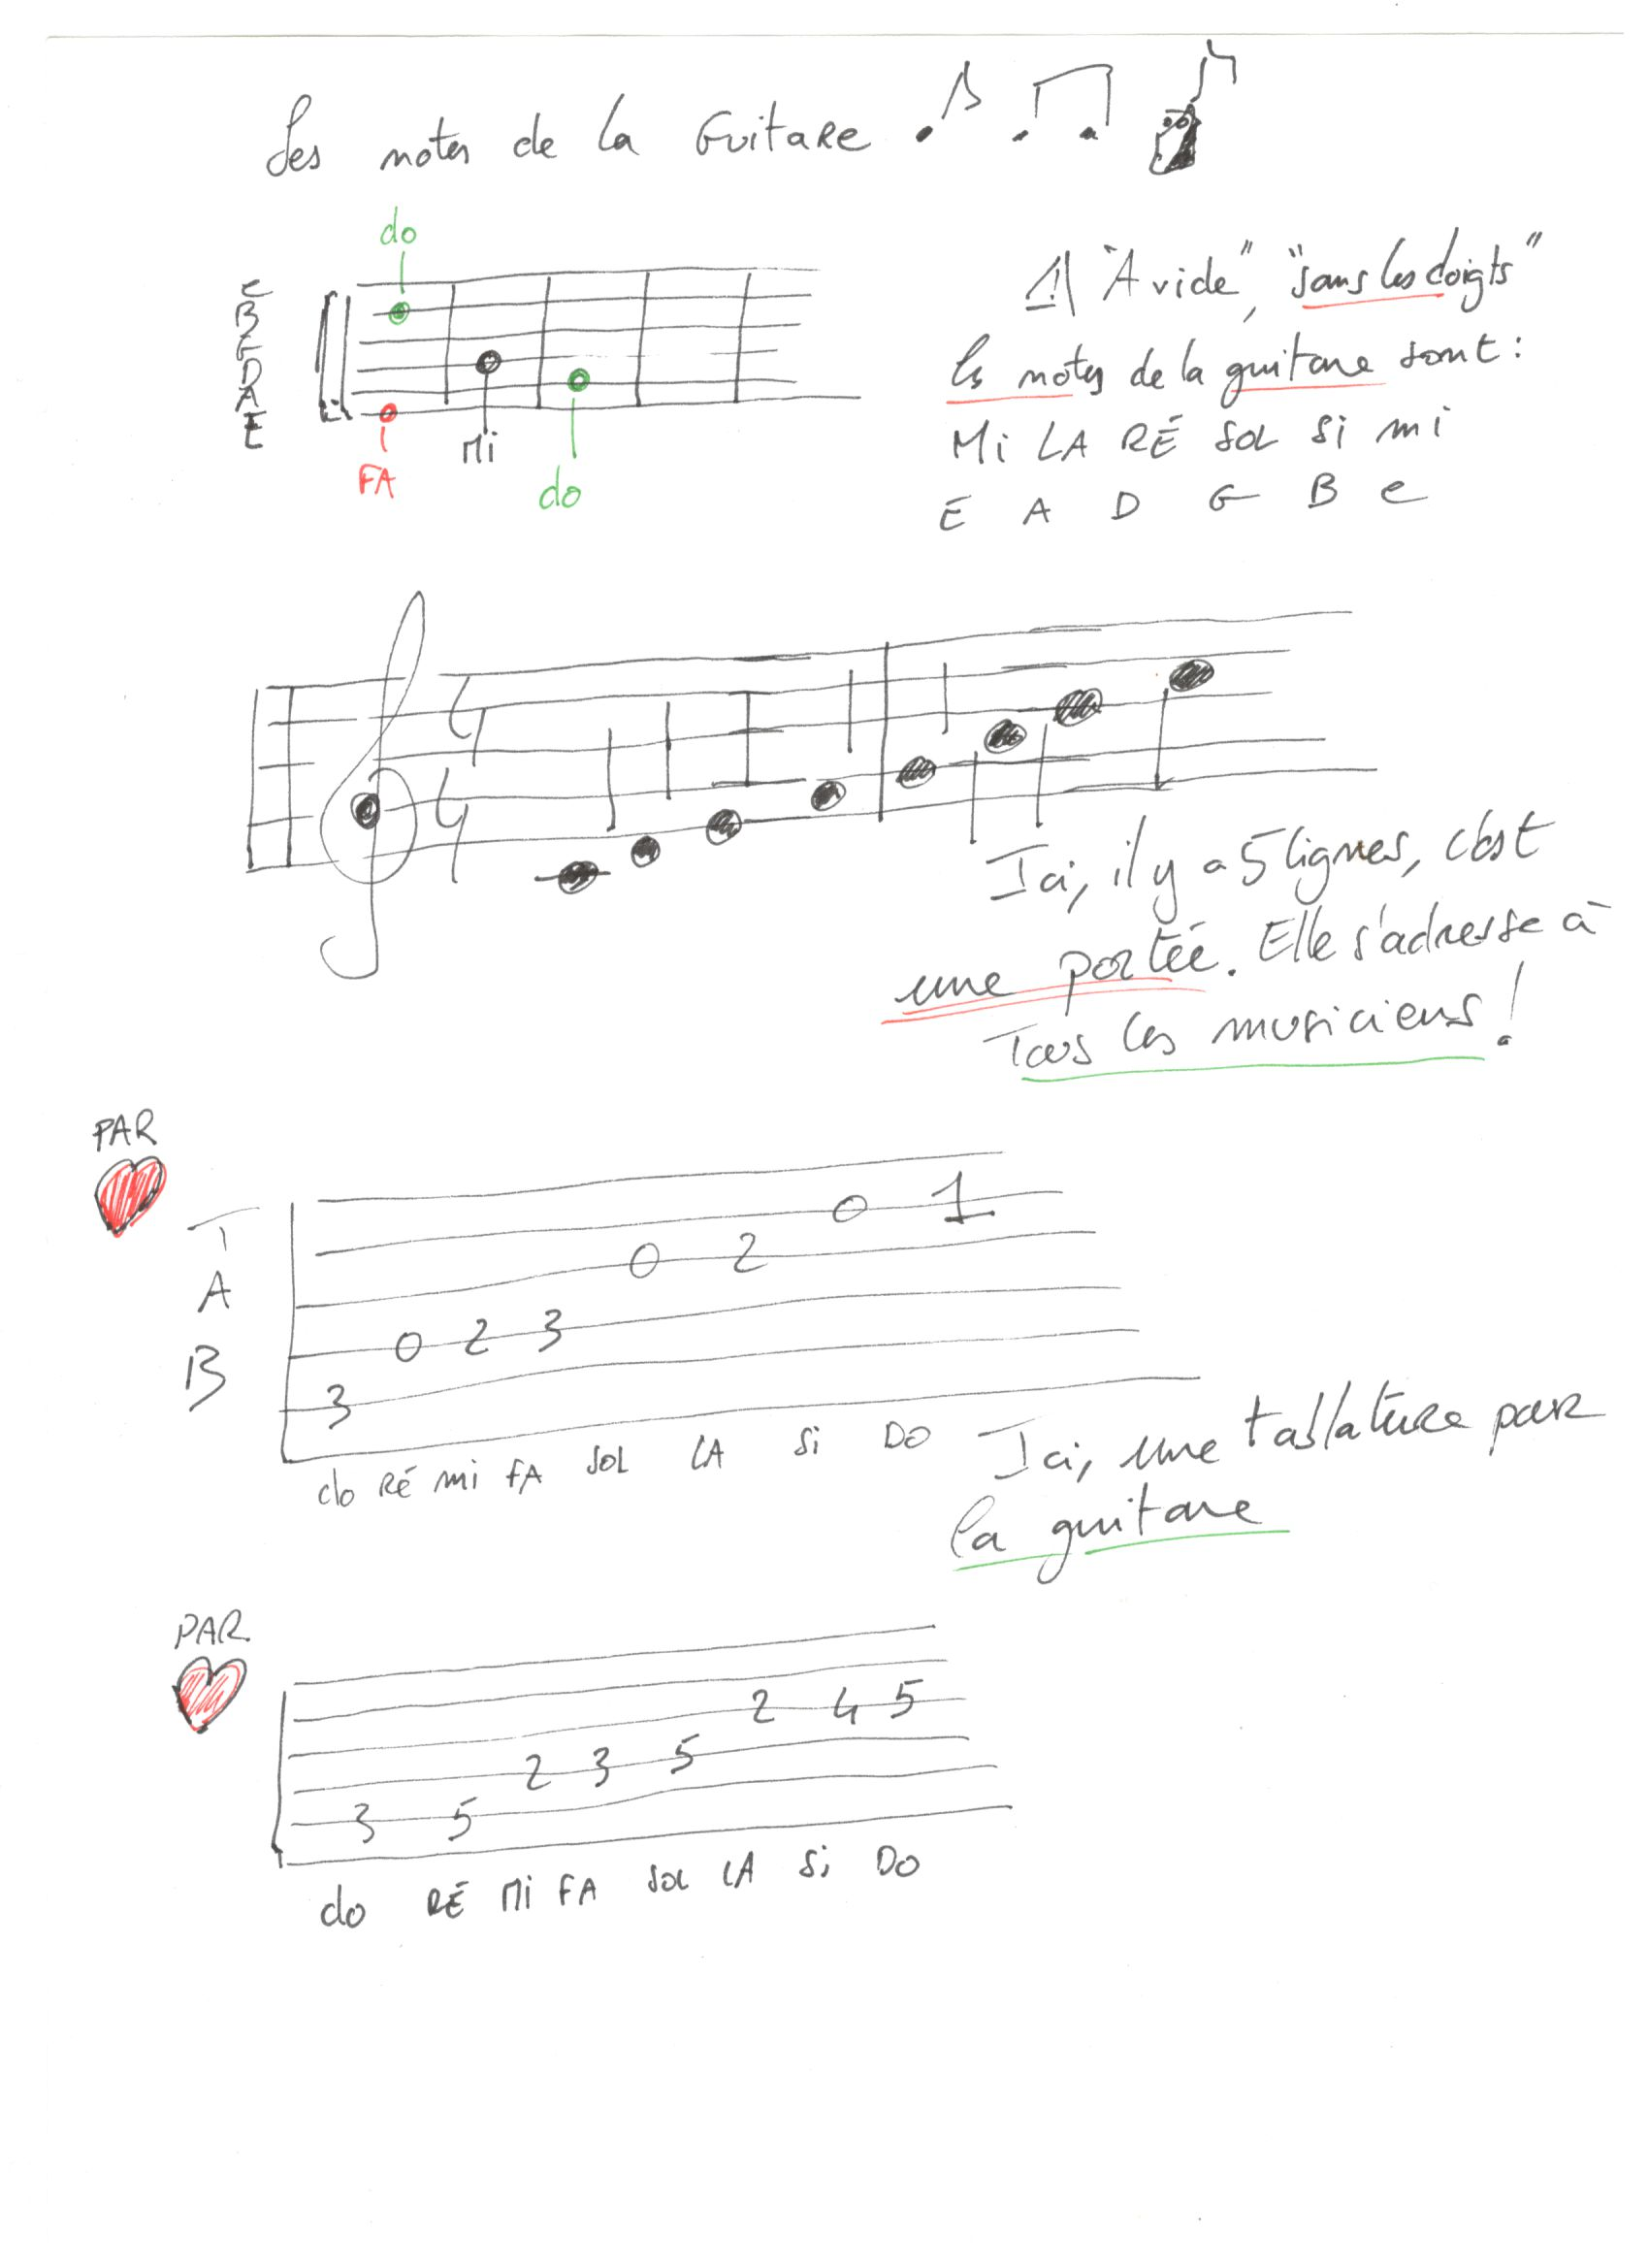 Les notes de la Guitare
do
e
B
G
D
A
E
FA
Mi
do
"A vide", "sans les doigts"
les notes de la guitare sont :
Mi LA RÉ SOL Si mi
E A D G B e
4
4
Ici, il y a 5 lignes, c'est
une portée. Elle s'adresse à
Tous les musiciens !
PAR
T
A
B
0 1
0 2
0 2 3
3
do RÉ mi FA SOL LA Si DO
Ici, une tablature pour
la guitare
PAR
2 4 5
2 3 5
3 5
do RÉ Mi FA SOL LA Si DO